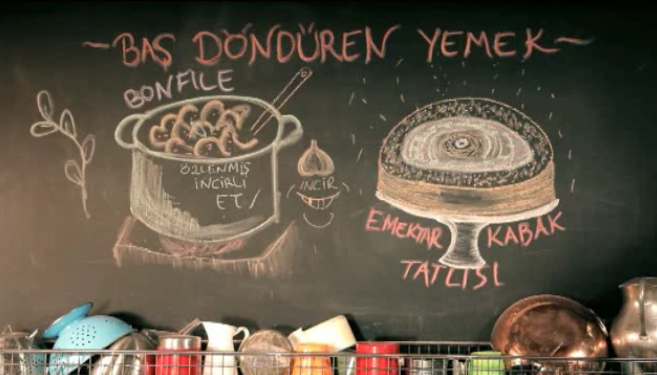 ~BAŞ DÖNDÜREN YEMEK~
BONFILE
ÖZLENMİŞ
İNCİRLİ
ET/
İNCİR
EMEKTAR KABAK
TATLISI